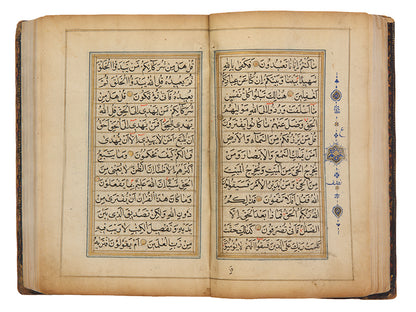 ما كنتم ايانا تعبدون فكفى بالله
شهيدا بيننا وبينكم ان كنا عن عبادتكم
لغافلين هنالك تبلوا كل نفس
ما اسلفت وردوا الى الله مولىهم
الحق وضل عنهم ما كانوا يفترون قل
من يرزقكم من السماء والارض
امن يملك السمع والابصار ومن يخرج
الحي من الميت ويخرج الميت من
الحي ومن يدبر الامر فسيقولون
الله فقل افلا تتقون فذلكم
الله ربكم الحق فماذا بعد الحق الا
الضلال فانى تصرفون كذلك حقت
كلمت ربك على الذين فسقوا انهم لا يؤمنون
قل هل من شركائكم من يبدؤا الخلق
ثم يعيده قل الله يبدؤا الخلق
ثم يعيده فانى تؤفكون قل هل من
شركائكم من يهدي الى الحق قل
الله يهدي للحق افمن يهدي الى الحق
احق ان يتبع امن لا يهدي الا ان يهدى
فما لكم كيف تحكمون وما يتبع
اكثرهم الا ظنا ان الظن لا يغني من
الحق شيئا ان الله عليم بما يفعلون
وما كان هذا القران ان يفترى من
دون الله ولكن تصديق الذي بين
يديه وتفصيل الكتب لا ريب فيه
من رب العلمين ام يقولون افتريه